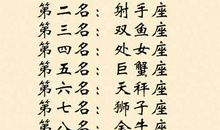 第二名：射手座
第三名：双鱼座
第四名：处女座
第五名：巨蟹座
第六名：天秤座
第七名：狮子座
第八名：金牛座